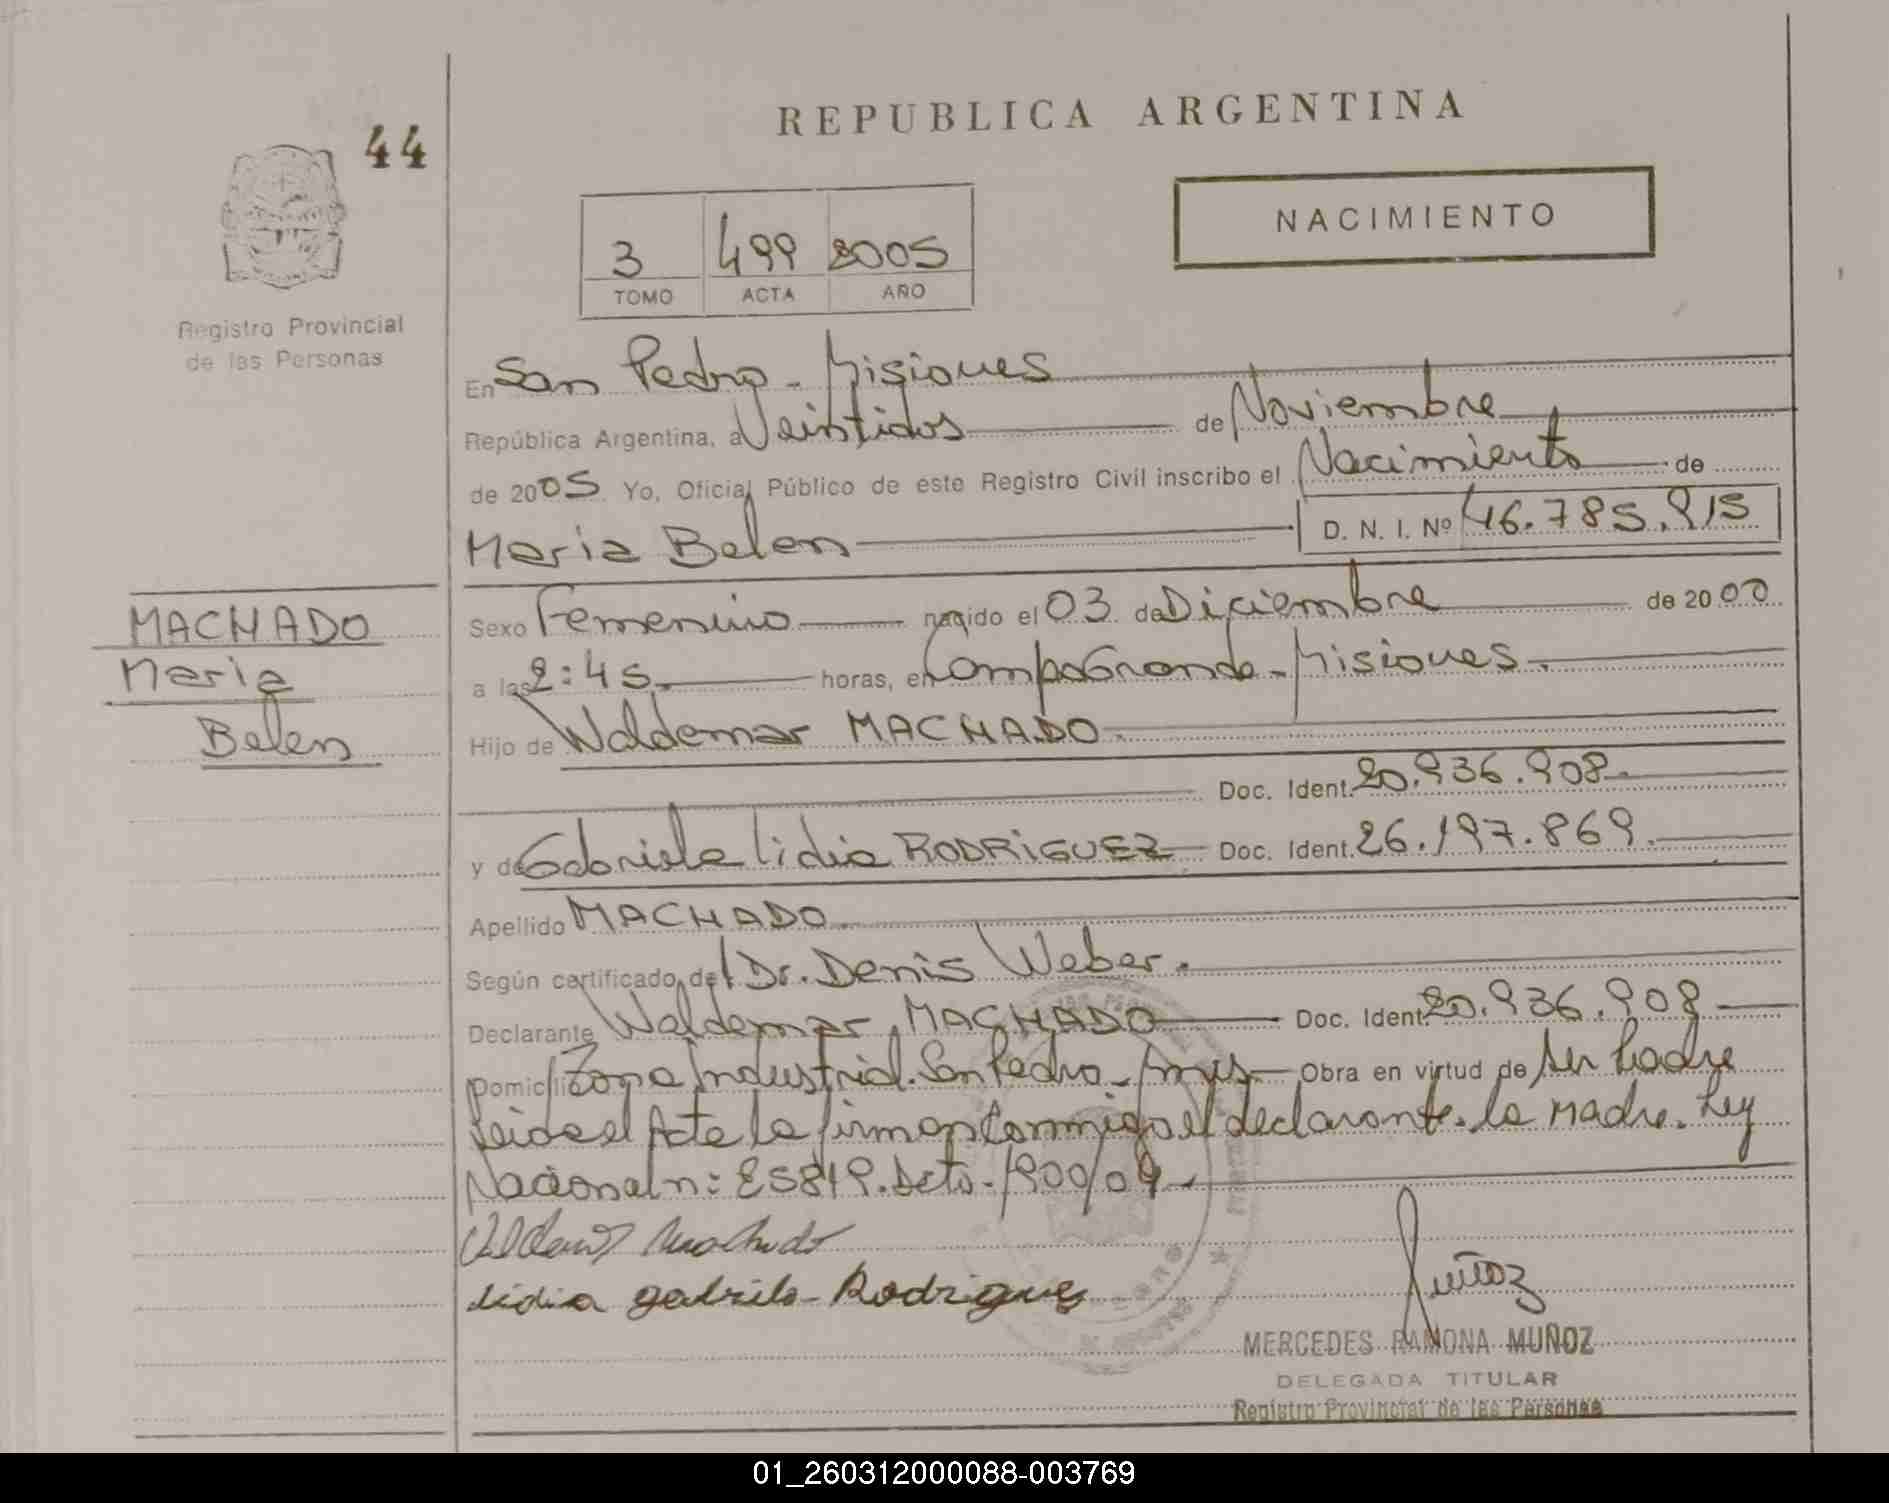 REPUBLICA ARGENTINA
44
NACIMIENTO
3 499 2005
TOMO ACTA AÑO
Registro Provincial
de las Personas
En San Pedro - Misiones
República Argentina, a Veintidos de Noviembre
de 2005 Yo, Oficial Público de este Registro Civil inscribo el Nacimiento de
Maria Belen D. N. I. Nº 46.785.915
MACHADO
Maria
Belen
Sexo Femenino nacido el 03 de Diciembre de 2000
a las 2:45 horas, en Campo Grande - Misiones.
Hijo de Waldemar MACHADO
Doc. Ident. 20.936.908
y de Gabriela Lidia RODRIGUEZ Doc. Ident. 26.197.869.
Apellido MACHADO
Según certificado del Dr. Denis Weber.
Declarante Waldemar MACHADO Doc. Ident. 20.936.908
Domicilio Zona Industrial. San Pedro - Mnes Obra en virtud de ser Padre
Leida el Acta la firman Conmigo el declarante. la Madre. Ley
Nacional n: 25819. Dcto. 1900/04.
Machado
Lidia gabriela Rodriguez
Muñoz
MERCEDES RAMONA MUÑOZ
DELEGADA TITULAR
Registro Provincial de las Personas
01_260312000088-003769